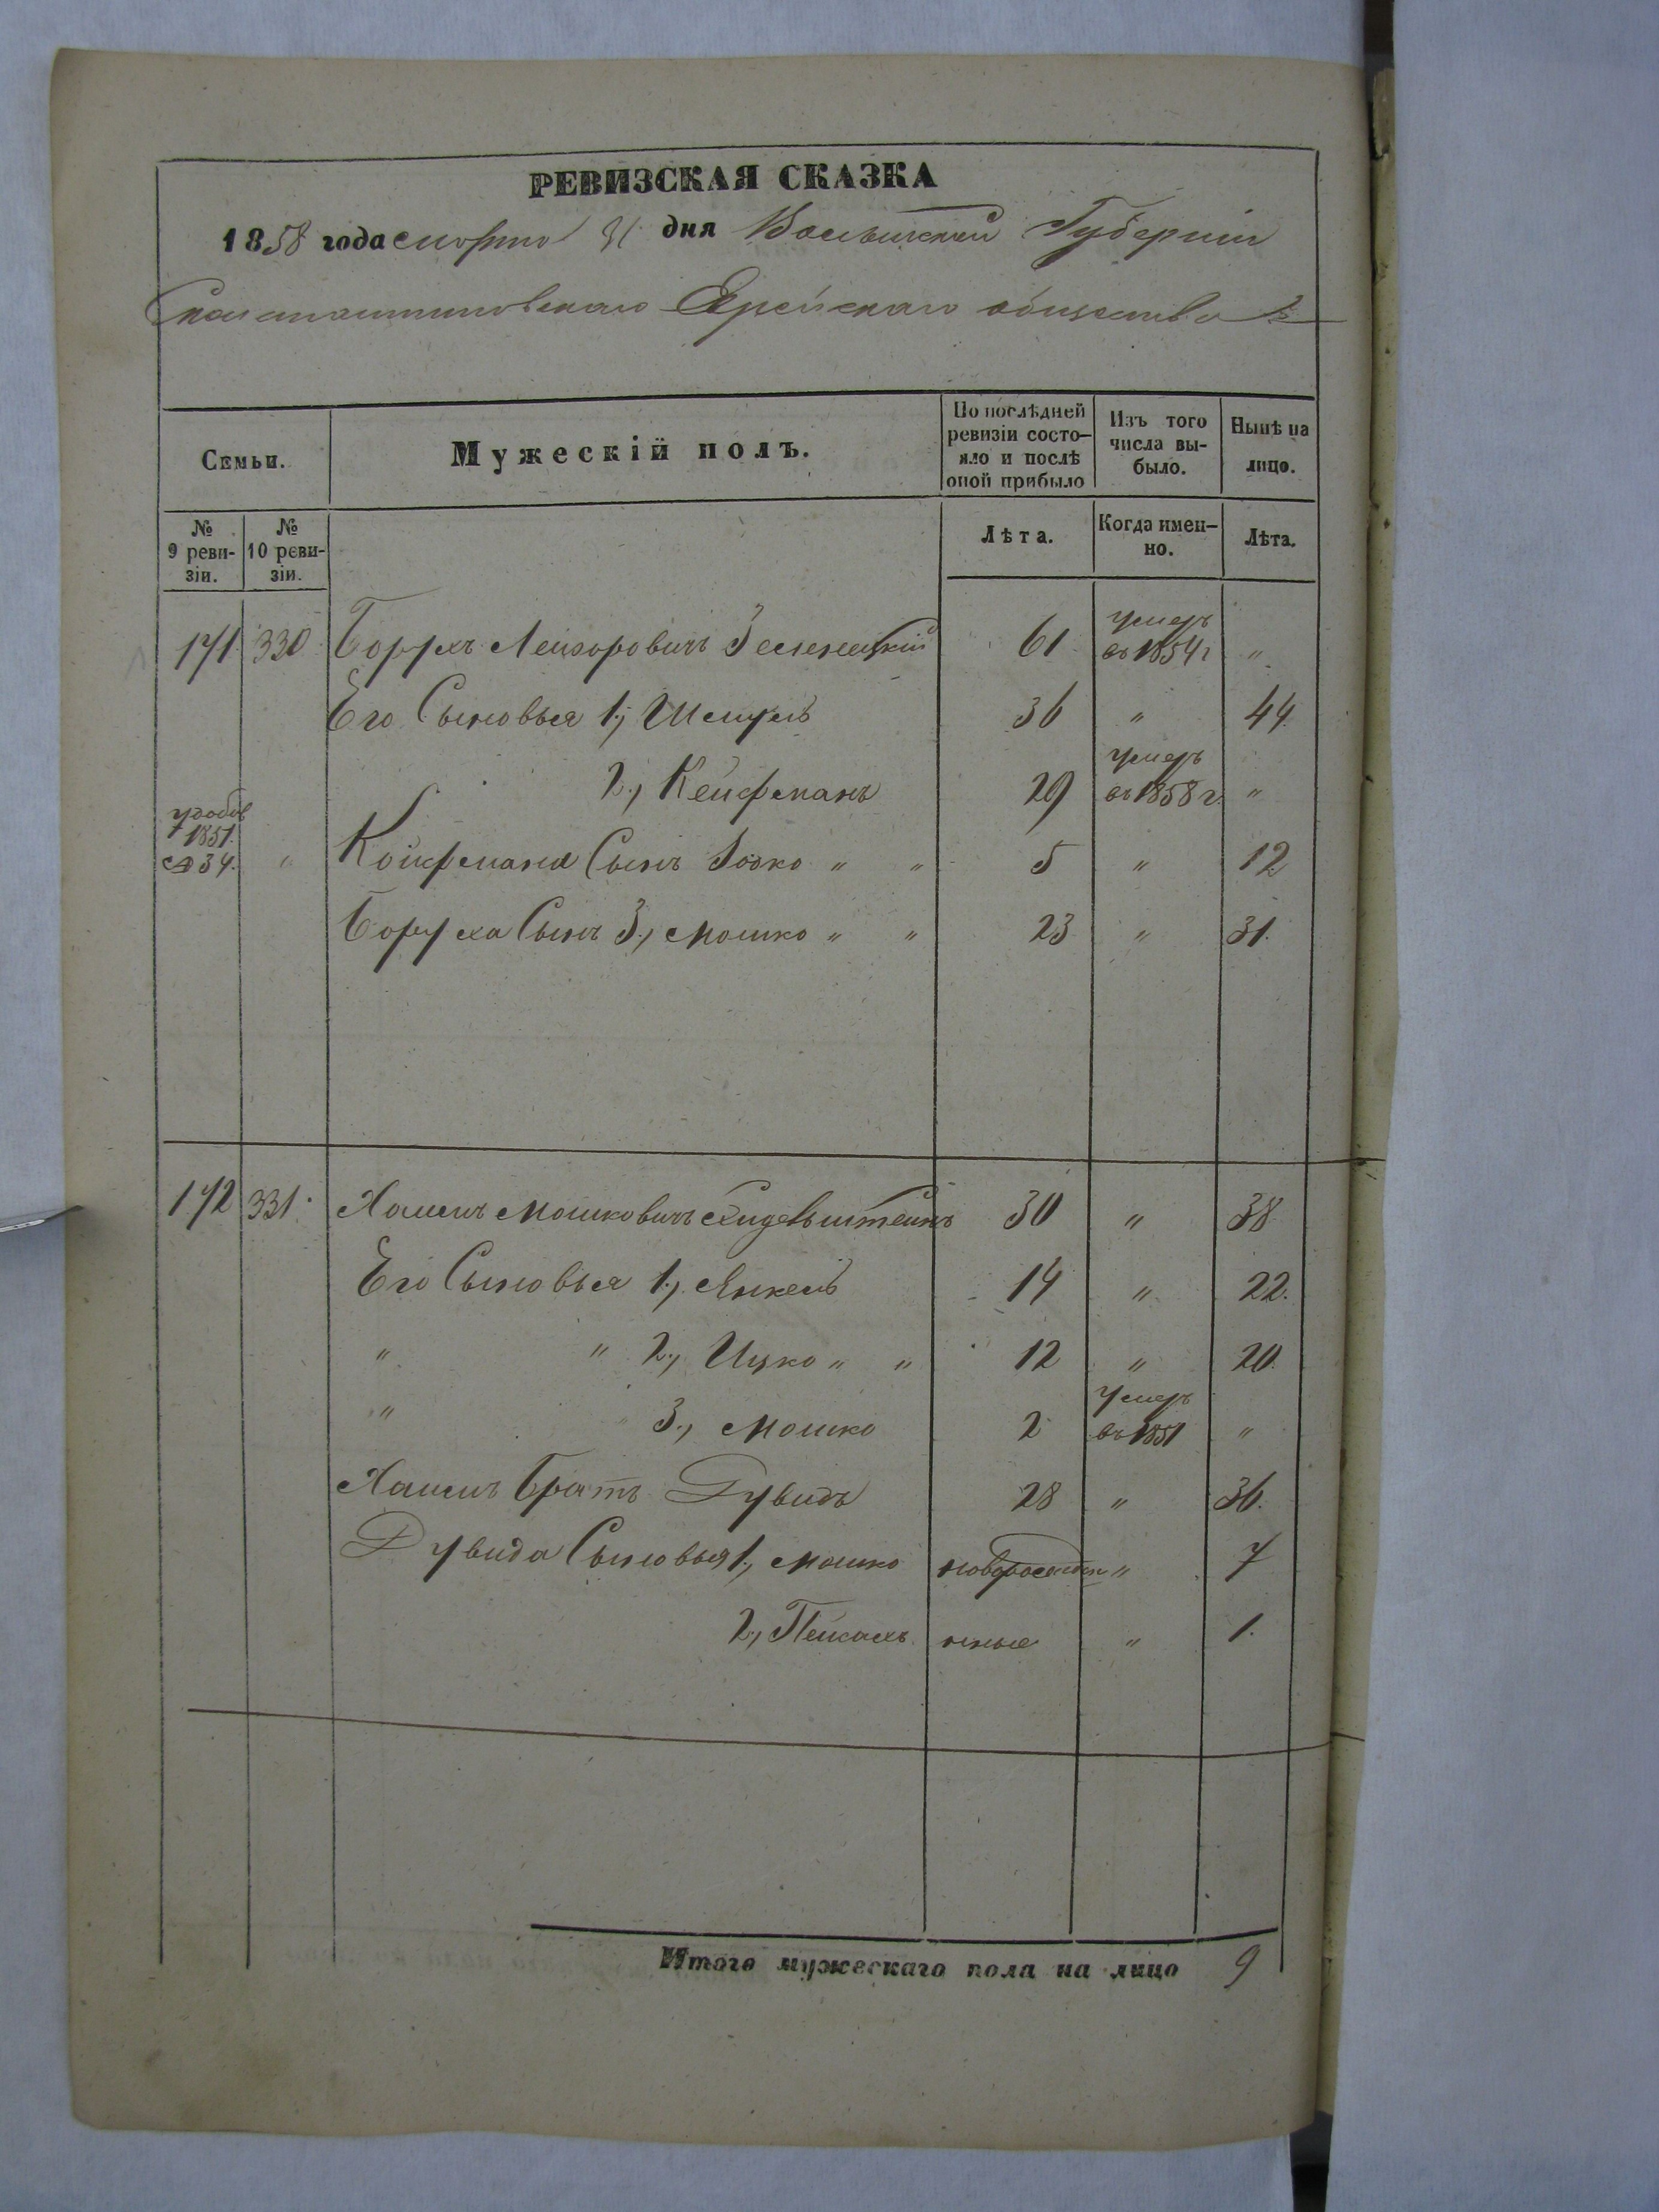 РЕВИЗСКАЯ СКАЗКА
1858 года Марта 31 дня Волынской Губерніи
Константиновскаго Еврейскаго общества
Семьи.
Мужескій полъ.
По послѣдней ревизіи состо-яло и послѣ оной прибыло
Изъ того числа вы-было.
Нынѣ на лицо.
№ 9 реви-зіи.
№ 10 реви-зіи.
Лѣта.
Когда имен-но.
Лѣта.
171 330 Борухъ Лейзоровичъ 61 умеръ въ 1854 г "
Его Сыновья 1, Шмуль 36 " 44
2, Кейфманъ 29 умеръ въ 1858 г. "
1851. № 34. " Койфмана Сынъ " " 5 " 12
Боруха Сынъ 3, Мошко " " 23 " 31.
172 331. Хаимъ Мошковичъ 30 " 38
Его Сыновья 1, Янкель 14 " 22.
" " 2, Ицко " " 12 " 20.
" " 3, Мошко 2 умеръ въ 1851 "
Хаима Братъ Дувидъ 28 " 36.
Дувида Сыновья 1, Мошко новорожден " 7
2, Пейсахъ ные " 1.
Итого мужескаго пола на лицо 9